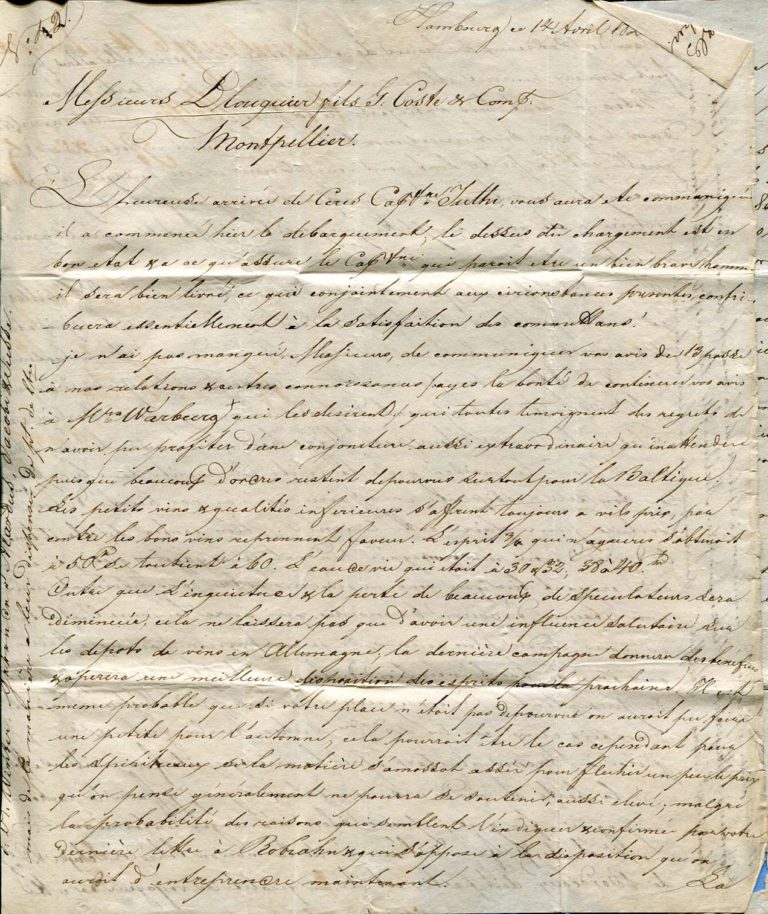 N° 42.
Hambourg ce 14 Avril 18
Messieurs Dlouquier fils G. Coste & Comp.
Montpellier.
L'heureuse arrivée de Ceres Cap.tne vous aura ete communiqué
il a commencé hier le debarquement, le dessus du chargement est en
bon etat & a ce qu'assure le Cap.tne qui paroit etre un bien brave homme
il sera bien livré, ce qui conjointement aux circonstances presentes, contri-
buera essentiellement à la satisfaction des comettans.
je n'ai pas manqué, Messieurs, de communiquer vos avis du 13 passé
à nos relations & autres connoissances, ayes la bonté de continuer vos avis
à Mrs Warburg qui les desirent, qui toutes temoignent des regrets de
n'avoir pu profiter d'une conjoncture aussi extraordinaire qu'inattendue
puis que beaucoup d'ordres restent depourvus surtout pour la Baltique.
Les petits vins & qualités inferieures s'offrent toujours a vils prix, par
contre les bons vins reprennent faveur. L'esprit 3/6 qui n'agueres s'obtenoit
à 50 se soutient à 60. L'eau de vie qui etoit à 30 & 32, 38 à 40
Outre que l'inquietude & la perte de beaucoup de speculateurs sera
diminuée, cela ne laissera pas que d'avoir une influence salutaire sur
les depots de vins en Allemagne, la dernière campagne donnera des bénéfices
& operera une meilleure disposition des esprits pour la prochaine. Il est
meme probable que si votre place n'étoit pas depourvue on auroit pu faire
une petite pour l'automne, cela pourroit être le cas cependant pour
les spiritueux si la matière s'amassoit assés pour flechir un peu le prix
qu'on pense généralement ne pourra se soutenir aussi elevé, malgré
la probabilité des raisons qui semblent l'indiquer & confirmé par votre
dernière lettre à Robrahn & qui s'oppose à la disposition qu'on
auroit d'entreprendre maintenant.
La